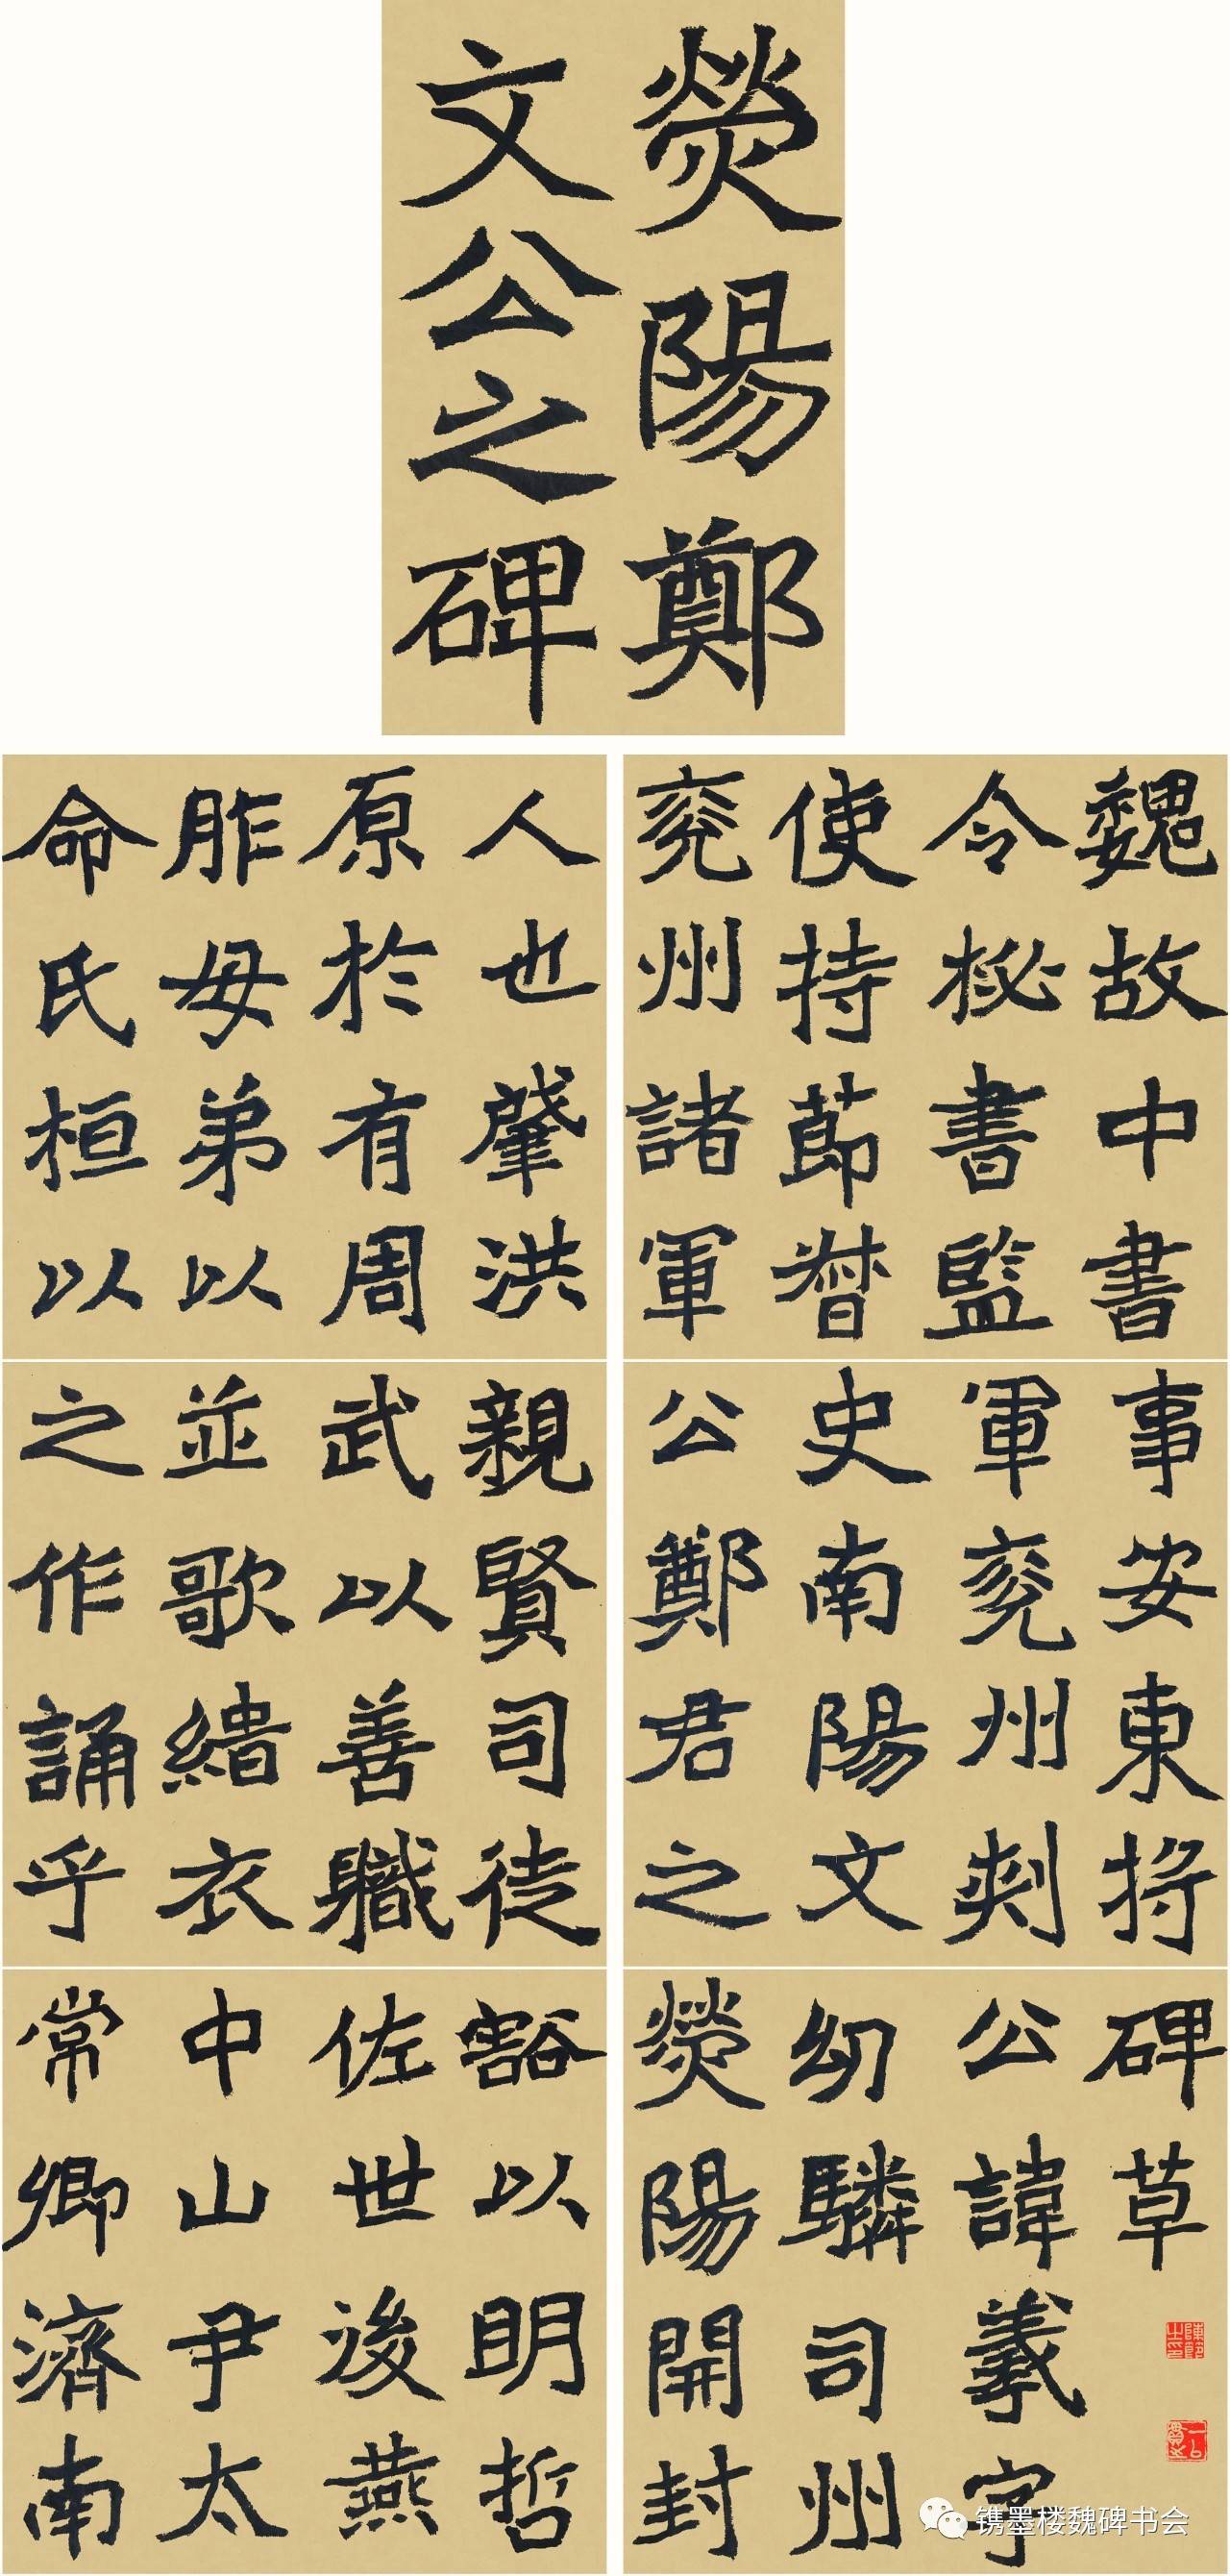 熒陽鄭
文公之碑
魏故中書
令秘書監
使持節督
兗州諸軍
事安東將
軍兗州刺
史南陽文
公鄭君之
碑草
公諱羲字
幼驎司州
熒陽開封
人也肇洪
原於有周
胙母弟以
命氏桓以
親賢司徒
武以善職
並歌緇衣
之作誦乎
豁以明哲
佐世後燕
中山尹太
常卿濟南
镌墨楼魏碑书会